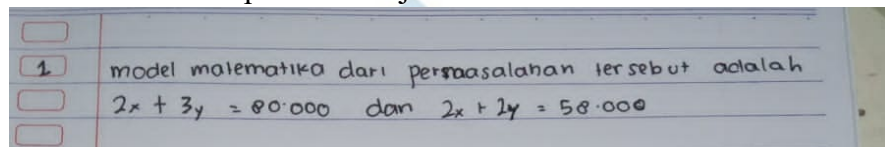 1 model matematika dari permaasalahan tersebut adalah
2x + 3y = 80.000 dan 2x + 2y = 58.000